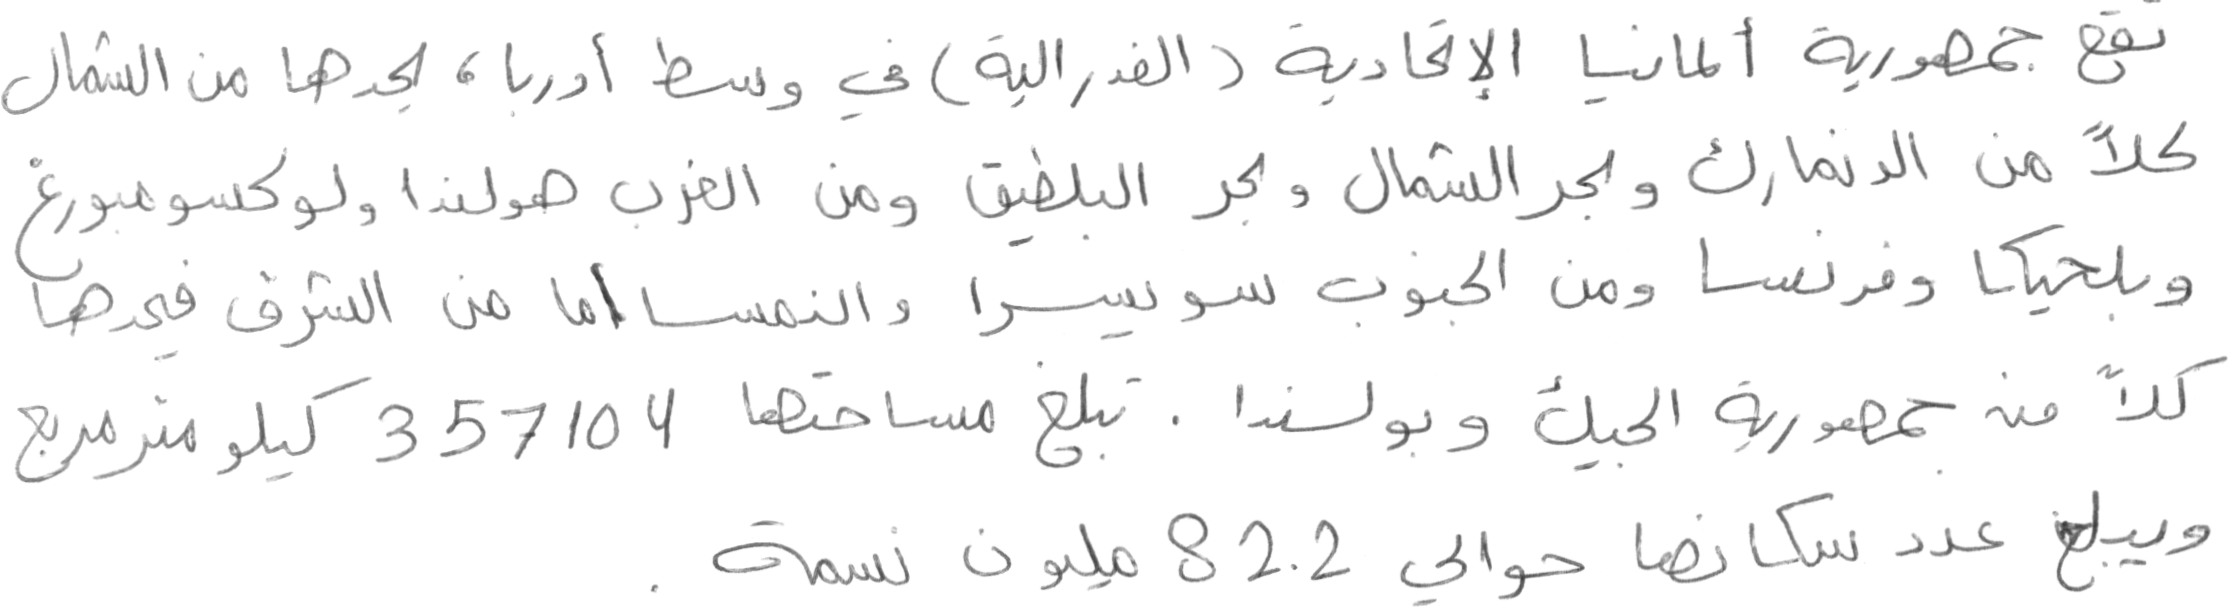 تقع جمهورية ألمانيا الإتحادية (الفدرالية) في وسط أوربا، يحدها من الشمال
كلاً من الدنمارك وبحر الشمال وبحر البلطيق ومن الغرب هولندا ولوكسومبورغ
وبلجيكا وفرنسا ومن الجنوب سويسرا والنمسا أما من الشرق فيحدها
كلاً من جمهورية الجيك وبولندا. تبلغ مساحتها 357104 كيلو متر مربع
ويبلغ عدد سكانها حوالي 82.2 مليون نسمة.